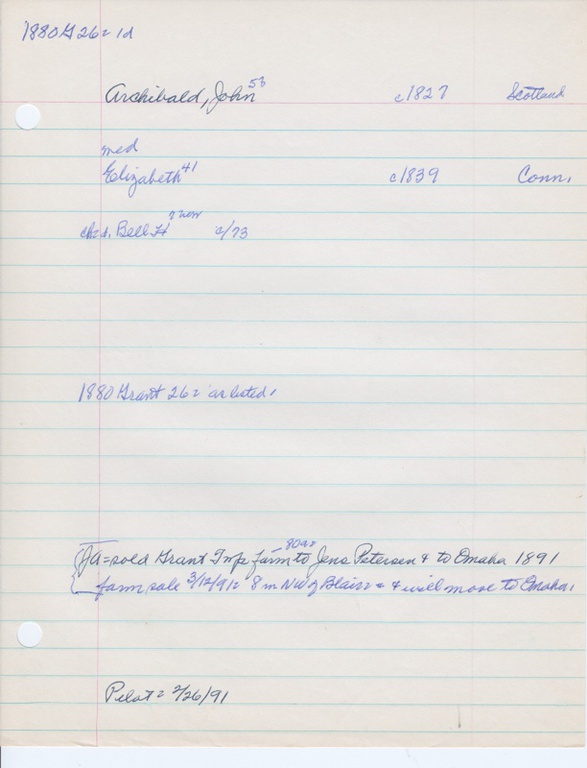 1880 G 26= 1d
Archibald, John 53 c1827 Scotland
med
Elizabeth 41 c1839 Conn.
Bell H c/73
1880 Grant 26= as listed.
80ac
JA = sold Grant Twp farm to Jens Petersen & to Omaha 1891
farm sale 3/12/91= 8 m NW of Blair = & will move to Omaha.
Pilot = 2/26/91